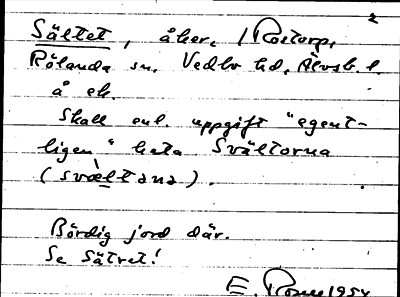 2
Sältet, åker, 1 Rostorp,
Rölanda sn. Vedbo hd, Älvsb. l.
å ek.
Skall enl. uppgift "egent-
ligen" heta Svältorna
(svæltana).
Bördig jord där.
Se Sätret!
E. 1954